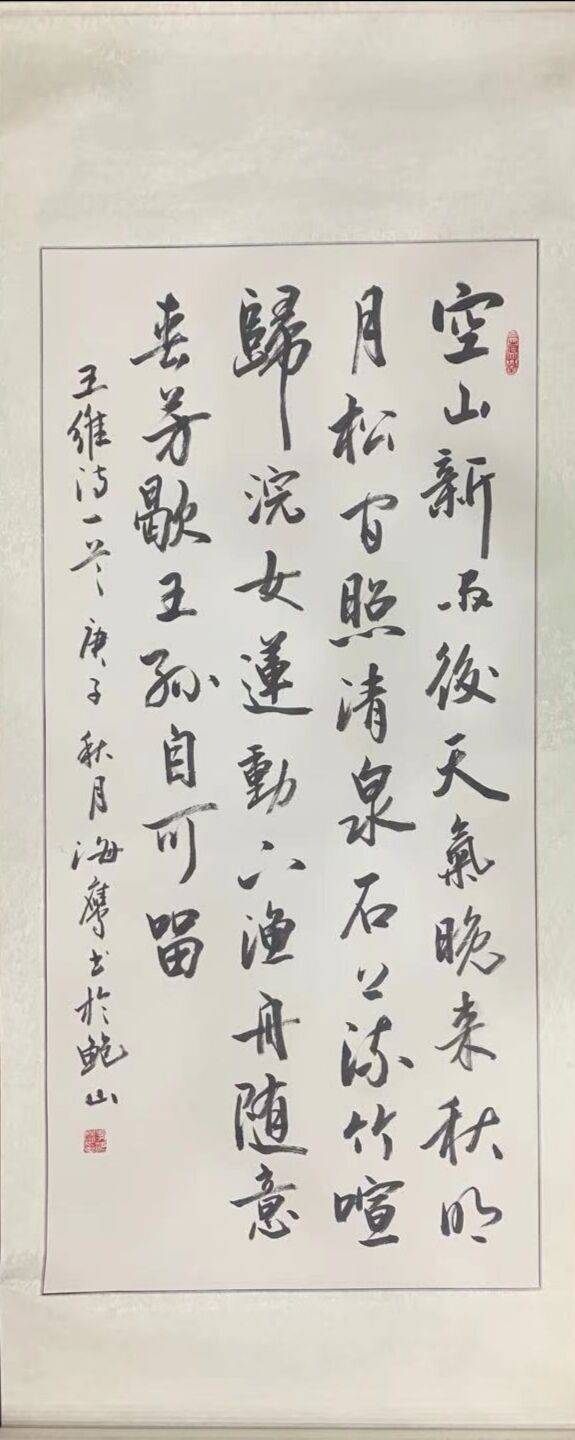 空山新雨後天氣晚来秋明
月松间照清泉石上流竹喧
歸浣女蓮動下漁舟随意
春芳歇王孫自可留
王維詩一首庚子秋月海鹰书於鲍山